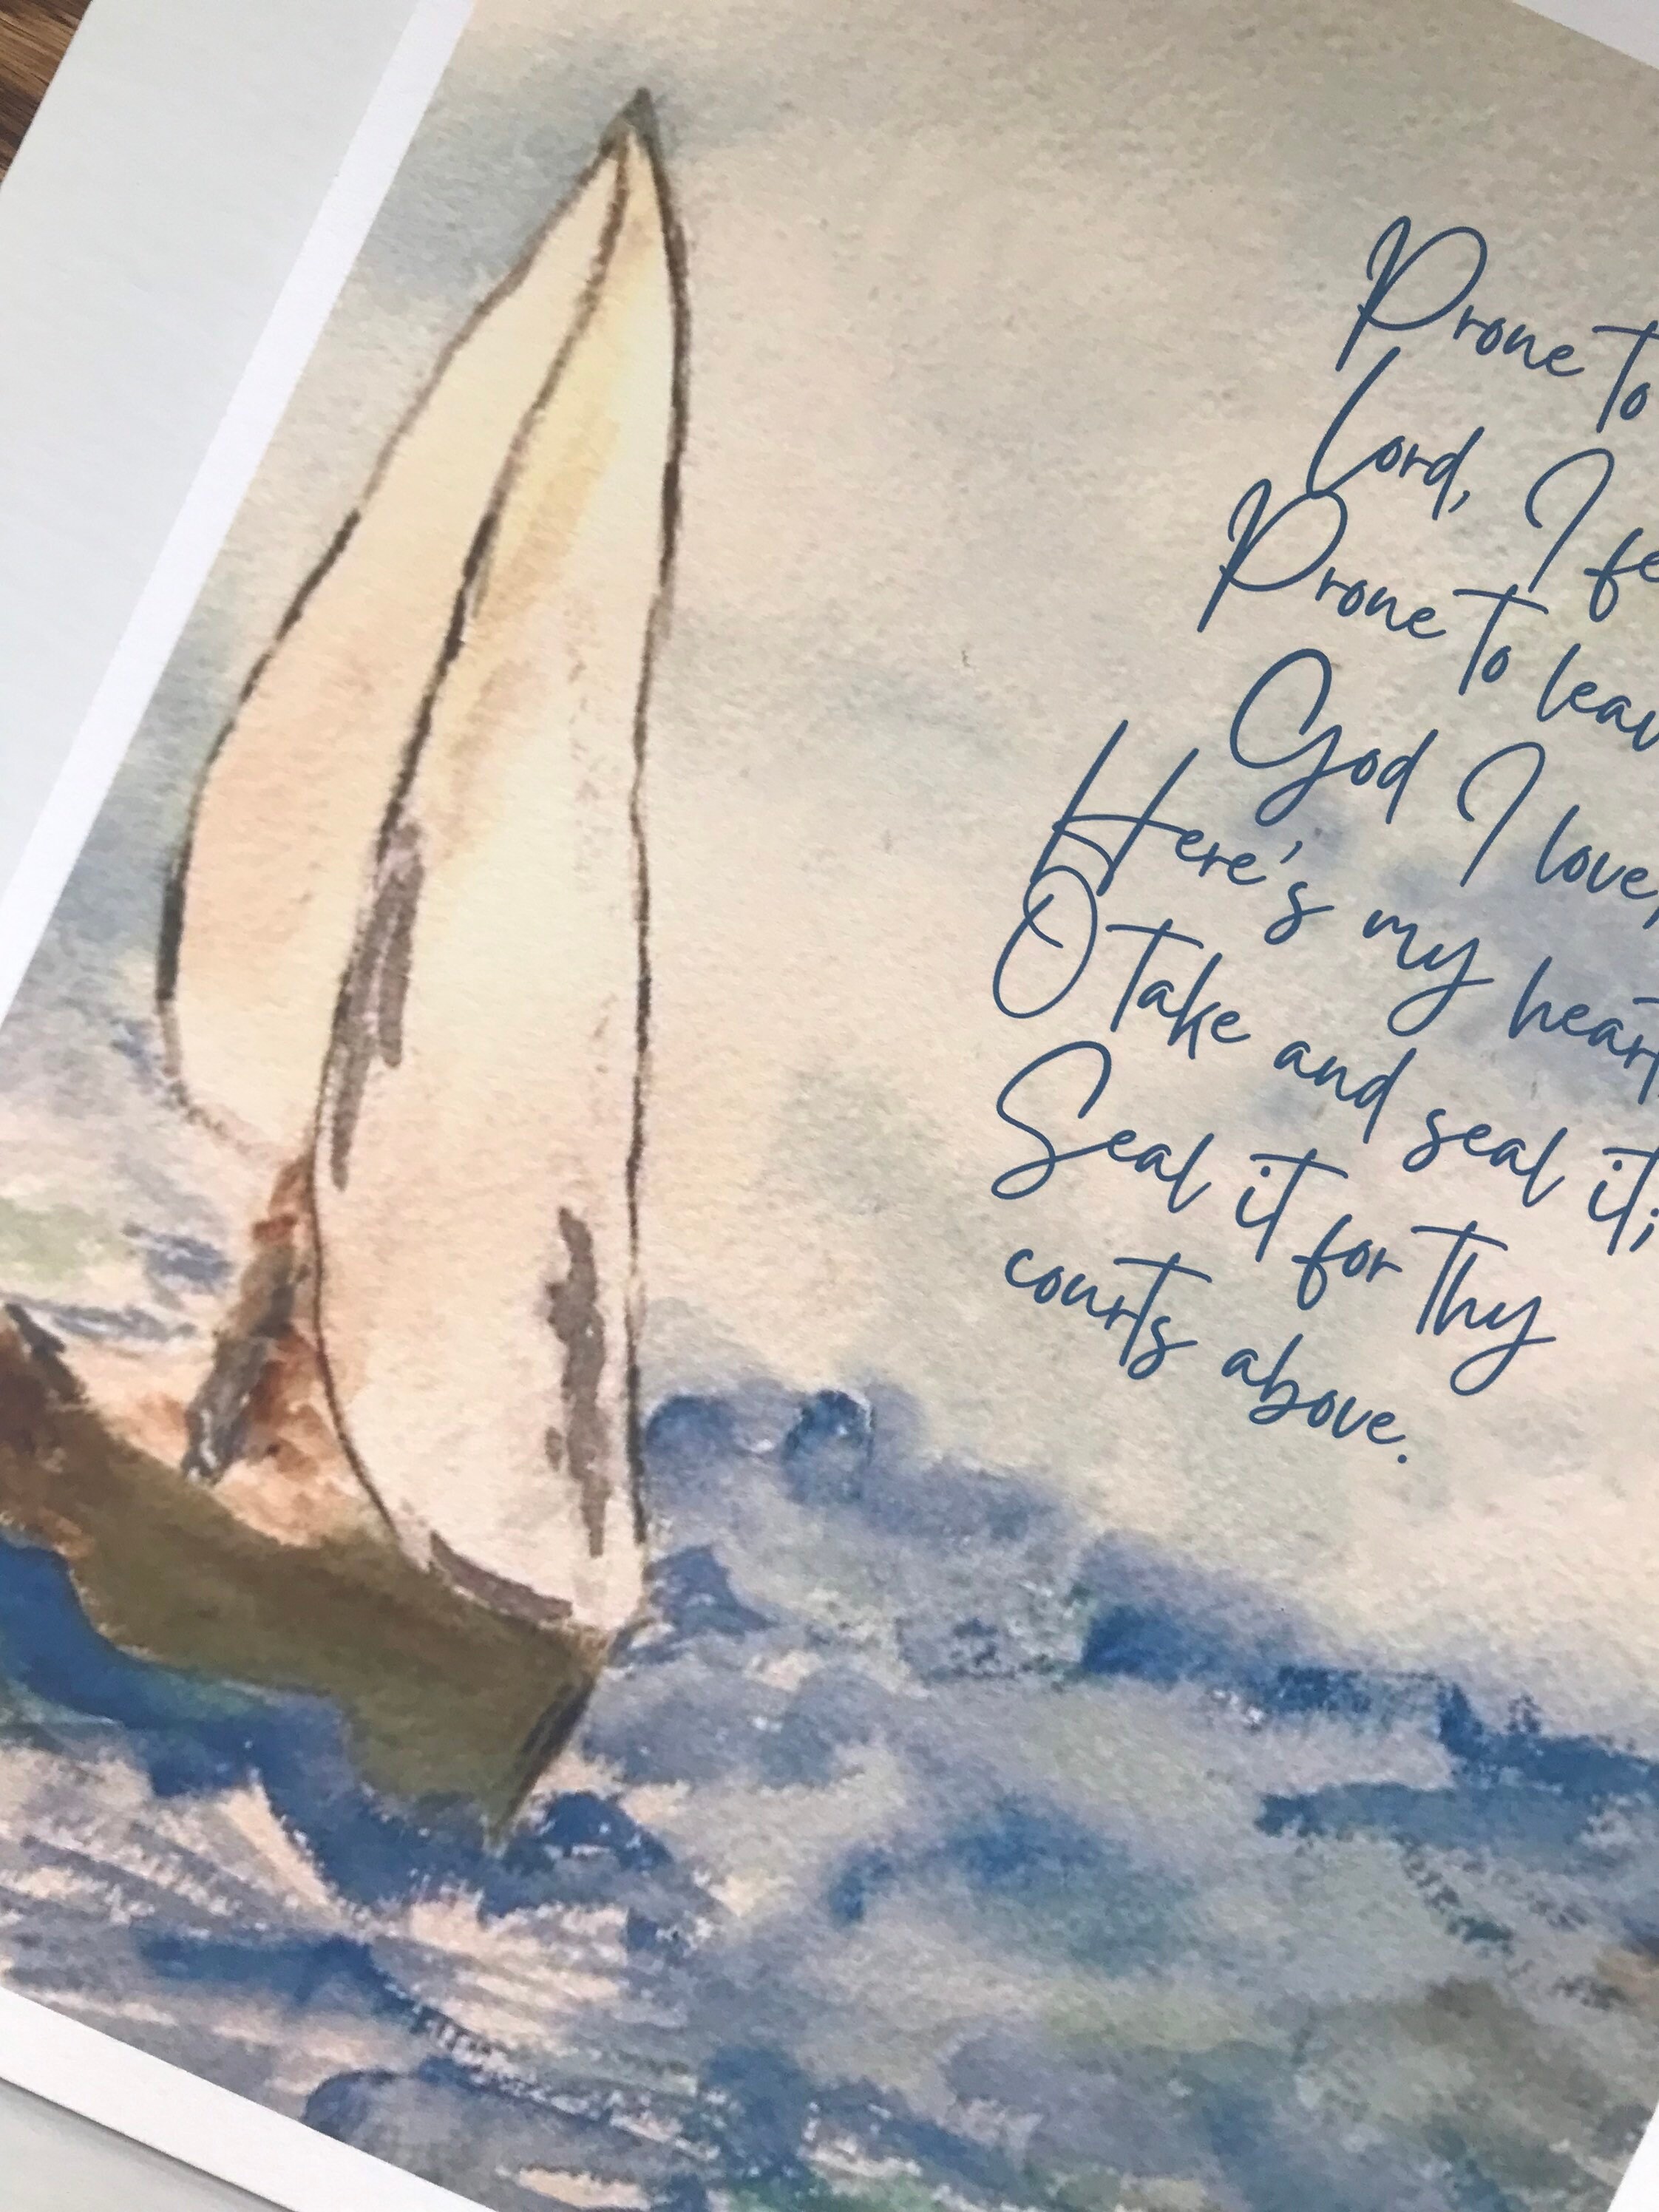 Prone to
Lord, I fe
Prone to leav
God I love,
Here's my heart
O take and seal it;
Seal it for thy
courts above.